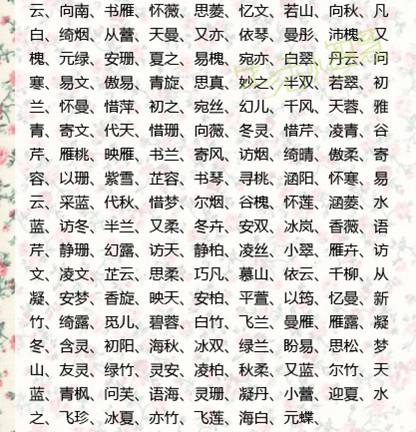 云、向南、书雁、怀薇、思菱、忆文、若山、向秋、凡
白、绮烟、从蕾、天曼、又亦、依琴、曼彤、沛槐、又
槐、元绿、安珊、夏之、易槐、宛亦、白翠、丹云、问
寒、易文、傲易、青旋、思真、妙之、半双、若翠、初
兰、怀曼、惜萍、初之、宛丝、幻儿、千风、天蓉、雅
青、寄文、代天、惜珊、向薇、冬灵、惜芹、凌青、谷
芹、雁桃、映雁、书兰、寄风、访烟、绮晴、傲柔、寄
容、以珊、紫雪、芷容、书琴、寻桃、涵阳、怀寒、易
云、采蓝、代秋、惜梦、尔烟、谷槐、怀莲、涵菱、水
蓝、访冬、半兰、又柔、冬卉、安双、冰岚、香薇、语
芹、静珊、幻露、访天、静柏、凌丝、小翠、雁卉、访
文、凌文、芷云、思柔、巧凡、慕山、依云、千柳、从
凝、安梦、香旋、映天、安柏、平萱、以筠、忆曼、新
竹、绮露、觅儿、碧蓉、白竹、飞兰、曼雁、雁露、凝
冬、含灵、初阳、海秋、冰双、绿兰、盼易、思松、梦
山、友灵、绿竹、灵安、凌柏、秋柔、又蓝、尔竹、天
蓝、青枫、问芙、语海、灵珊、凝丹、小蕾、迎夏、水
之、飞珍、冰夏、亦竹、飞莲、海白、元蝶、